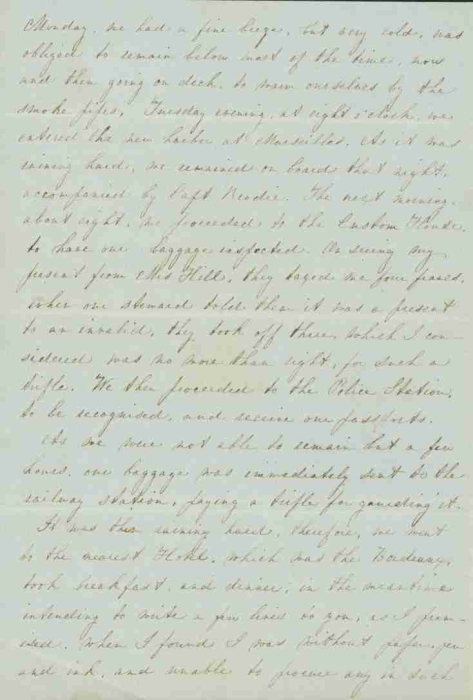 Monday, we had a fine breeze, but very cold, was
obliged to remain below most of the time, now
and then going on deck, to warm ourselves by the
smoke pipes. Tuesday evening, at eight o'clock, we
entered the new harbor at Marseilles. As it was
raining hard, we remained on board that night,
accompanied by Capt The next morning,
about eight, we proceeded to the Custom House,
to have our baggage inspected. On seeing my
present from Mrs Hill, they taxed me four francs,
when our steward told them it was a present
to an invalid, they took off three, which I con-
sidered was no more than right, for such a
trifle. We then proceeded to the Police Station,
to be recognised, and receive our passports.
As we were not able to remain but a few
hours, our baggage was immediately sent to the
railway station, paying a trifle for it.
It was then raining hard, therefore, we went
to the nearest Hotel, which was the
took breakfast, and dinner, in the meantime
intending to write a few lines to you, as I prom-
ised, when I found I was without paper, pen
and ink, and unable to procure any in such